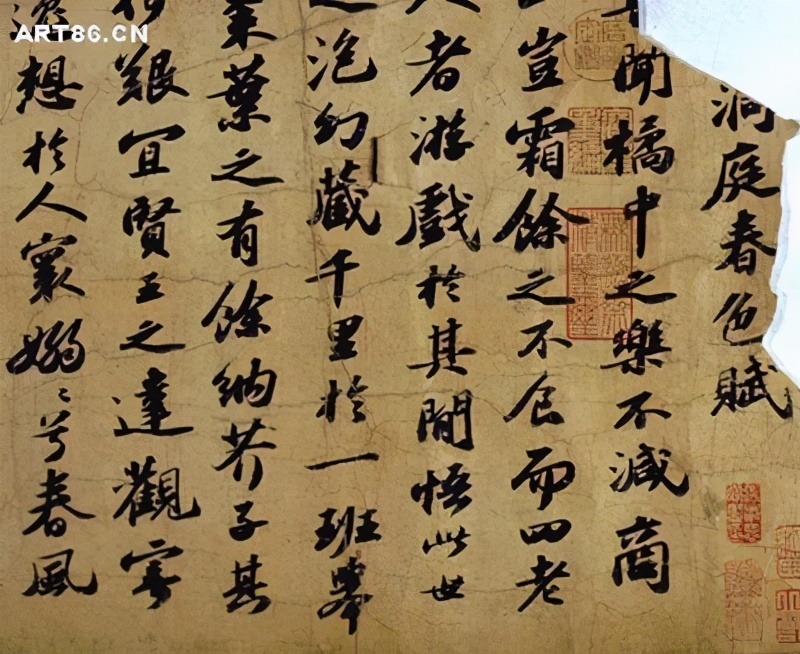 ART86.CN
洞庭春色賦
聞橘中之樂不減商
豈霜餘之不食而四老
人者游戲於其間悟此世
之泡幻藏千里於一班舉
葉之有餘納芥子其
艱宜賢王之達觀寄
逸想於人寰嫋〻兮春風